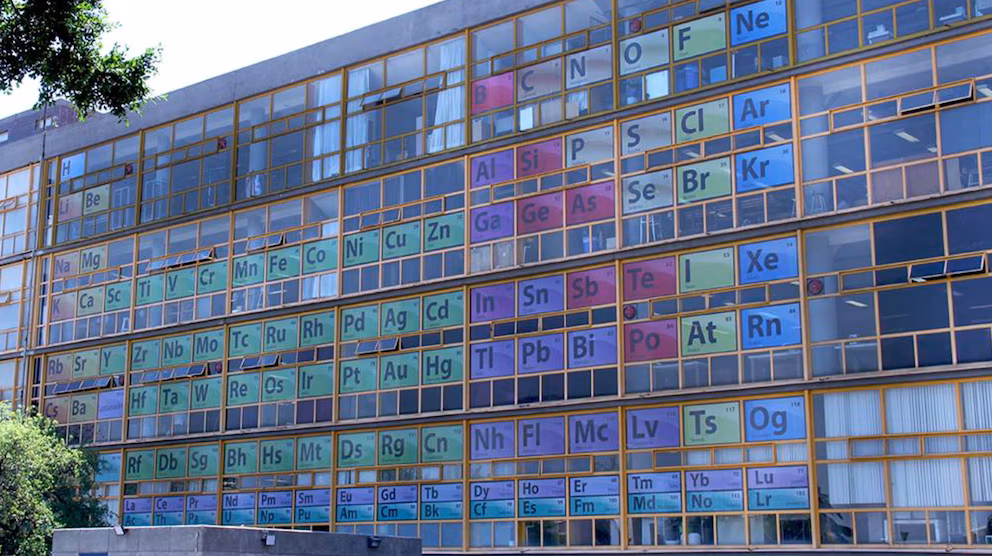 H
Li Be B C N O F Ne
Na Mg Al Si P S Cl Ar
K Ca Sc Ti V Cr Mn Fe Co Ni Cu Zn Ga Ge As Se Br Kr
Rb Sr Y Zr Nb Mo Tc Ru Rh Pd Ag Cd In Sn Sb Te I Xe
Cs Ba Hf Ta W Re Os Ir Pt Au Hg Tl Pb Bi Po At Rn
Rf Db Sg Bh Hs Mt Ds Rg Cn Nh Fl Mc Lv Ts Og
La Ce Pr Nd Pm Sm Eu Gd Tb Dy Ho Er Tm Yb Lu
Ac Th Pa U Np Pu Am Cm Bk Cf Es Fm Md No Lr